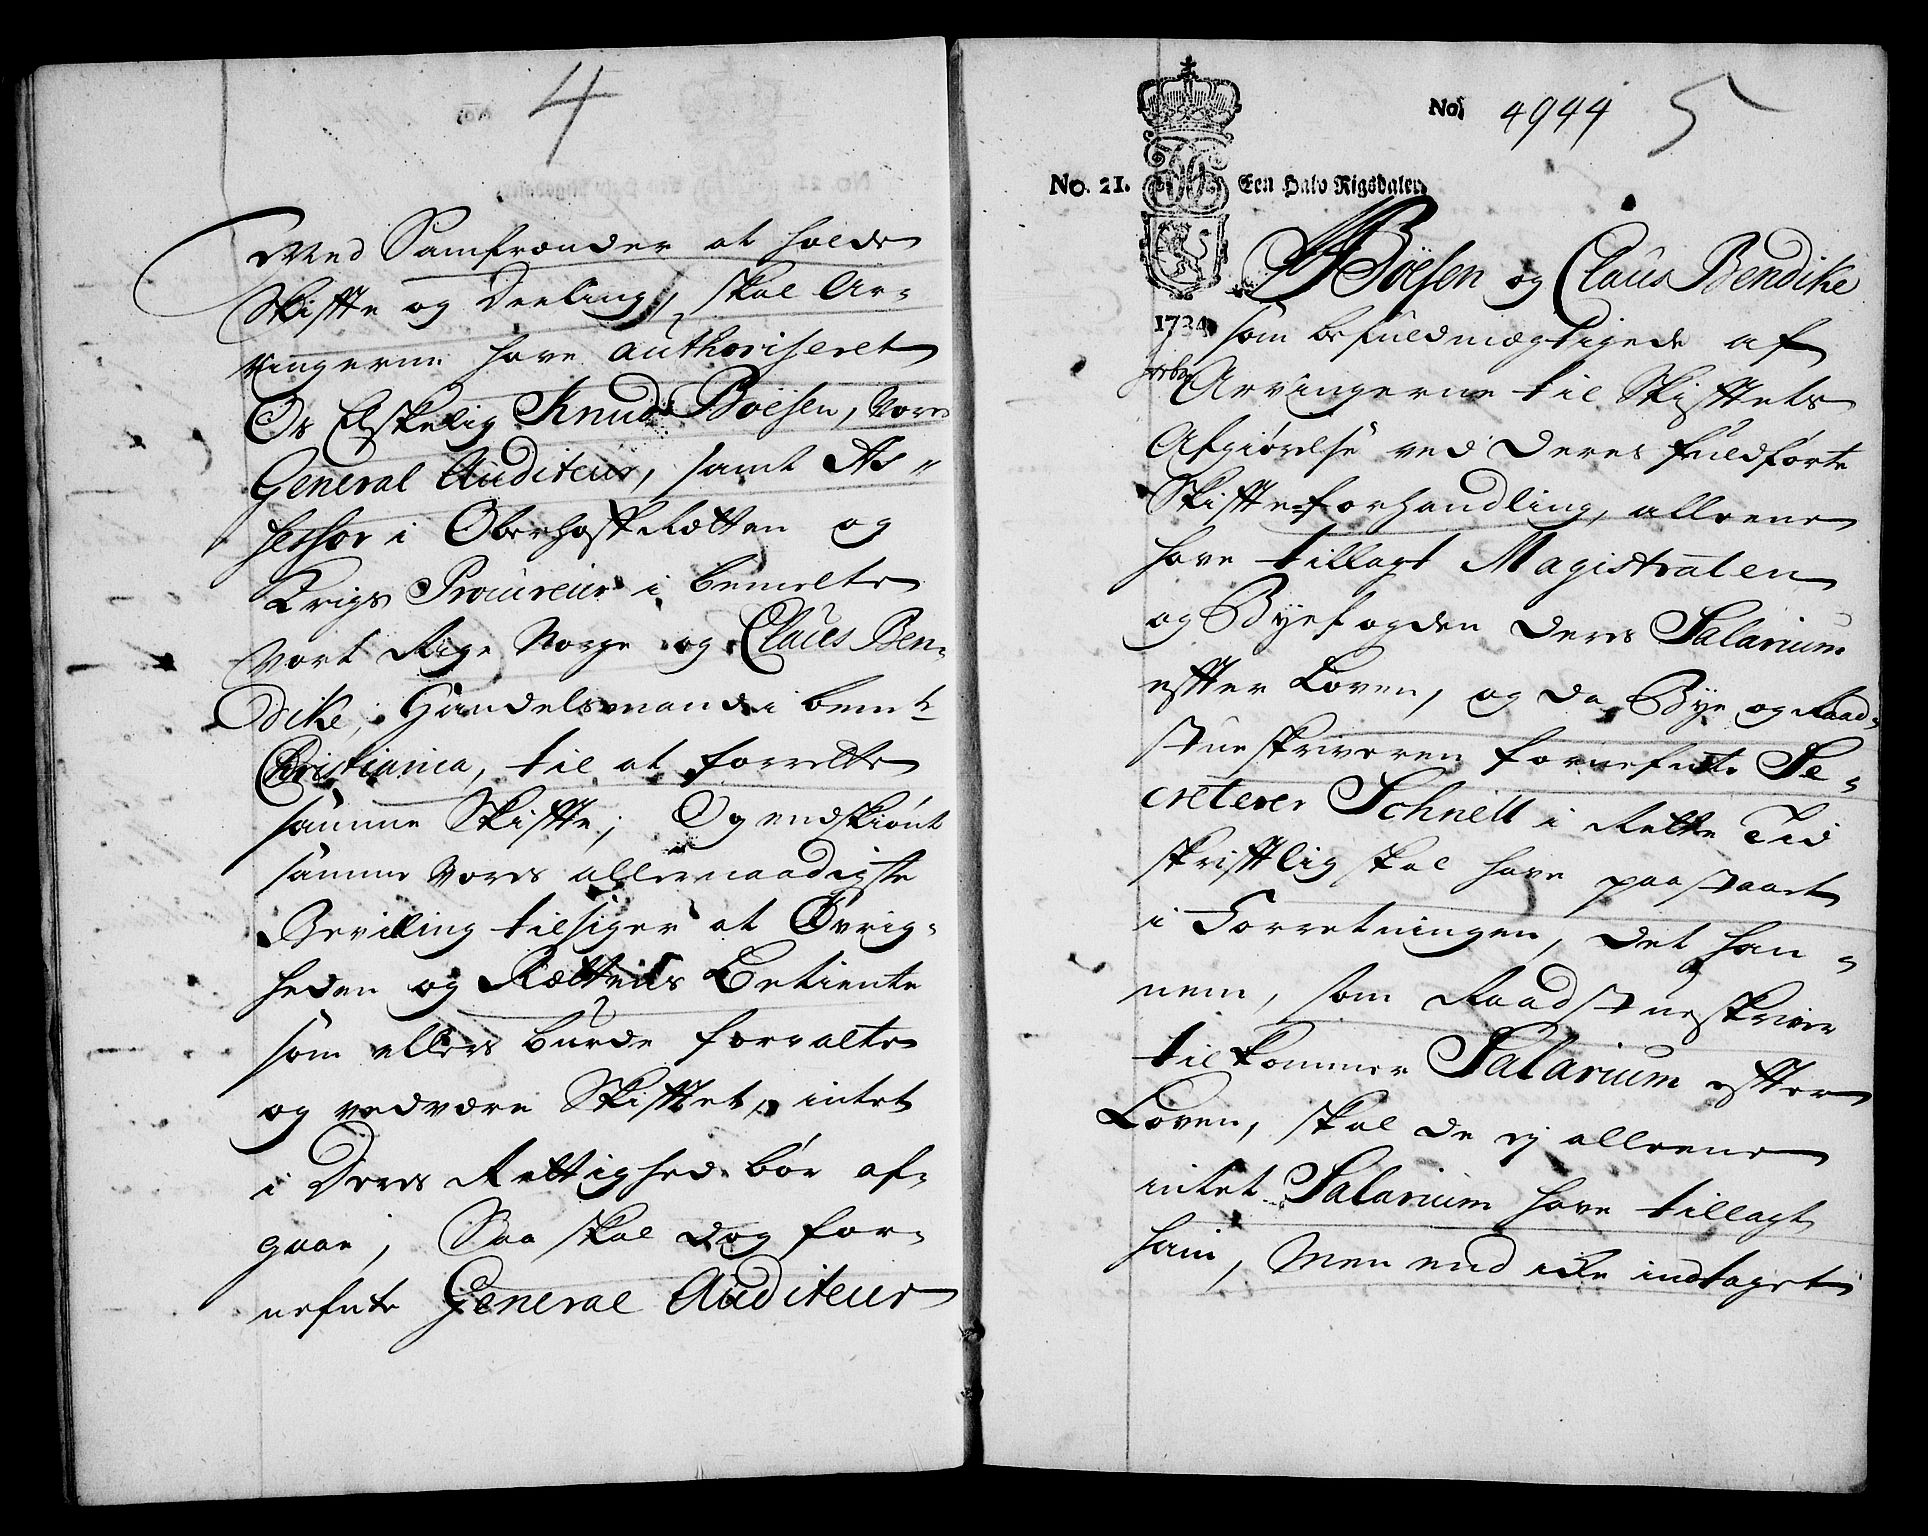 4
Med Samfrænder at holde
Skiffte og Deeling, skal Ar-
vingerne have authoriseret
Os Elskelig Knud Boesen, Vores
General Auditeur, samt As-
sessor i OberhoffRætten og
Krigs Procureur i bemelte
Vort Rige Norge og Claus Ben-
dike, Handelsmand i bemte
Christiania, til at forrette
samme Skiffte; Og endskiönt
samme Vores allernaadigste
Bevilling tilsiger at Övrig-
heden og Rættens Betiente
som ellers burde forvalte
og vedvære Skifftet, intet
i Deres Rettighed bör af-
gaae, Saa skal dog for-
nefnte General Auditeur
No. 4944 5
No. 21. Een Halv Rigsdaler.
1734
Boesen og Claus Bendike
som befuldmægtigede af
Arvingerne til Skifftets
Afgiörelse ved deres fuldförte
Skiffte-forhandling, alleene
have tillagt Magistraten
og Byefogden deres Salarium
effter Loven, og da Bye og Raad-
stueskriveren fornefnte Se-
creterer Schnell i Rette Tid
skrifftlig skal have paastaaet
i Forretningen, det han-
nem, som Raadstueskriver
tilkommer Salarium effter
Loven, skal de ej alleene
intet Salarium have tillagt
ham, Men end ikke indtaget